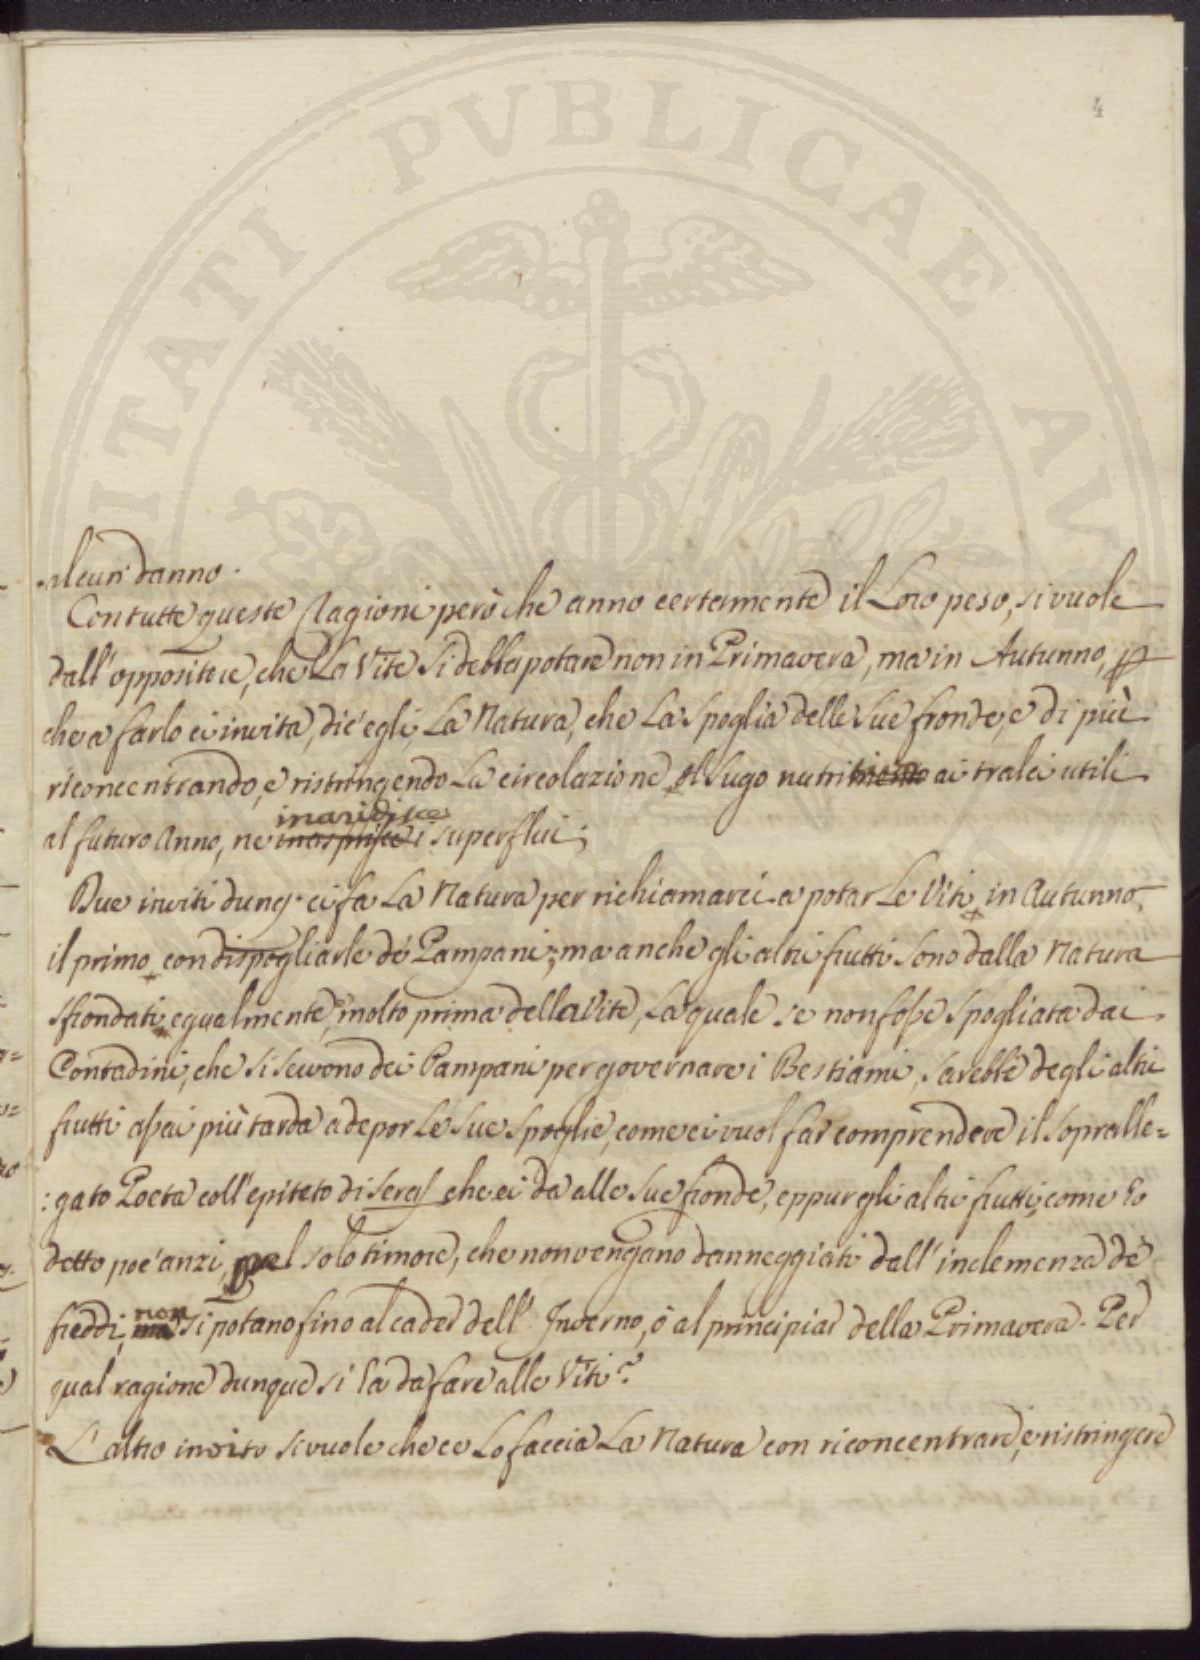 4
alcun danno.
Con tutte queste Ragioni però che anno certamente il Loro peso, si vuole
dall'oppositore, che La Vite si debba potare non in Primavera, ma in Autunno,
che a farlo ci invita, dic'egli, La Natura, che La spoglia delle sue fronde, e di più
riconcentrando, e ristringendo La circolazione del sugo nutritivo ai tralci utili
al futuro Anno, ne inaridisce i superflui;
Due inviti dunq. ci fa La Natura per richiamarci a potar Le Viti in Autunno,
il primo con dispogliarle dè Pampani; ma anche gli altri frutti sono dalla Natura
sfrondati egualmente, molto prima della Vite, La quale se non fosse spogliata dai
Contadini, che si servono dei Pampani per governare i Bestiami, sarebbe degli altri
frutti assai più tarda a depor Le sue spoglie, come ci vuol far comprendere il sopralle=
:gato Poeta coll'epiteto di seras che ei da alle sue fronde, eppur gli altri frutti, come ho
detto poc'anzi, pel solo timore, che non vengano danneggiati dall'inclemenza de'
freddi, non si potano fino al cader dell'Inverno, ò al principiar della Primavera. Per
qual ragione dunque si ha da fare alle Viti?
L'altro invito si vuole che ce Lo faccia La Natura con riconcentrare, e ristringere
PVBLICAE